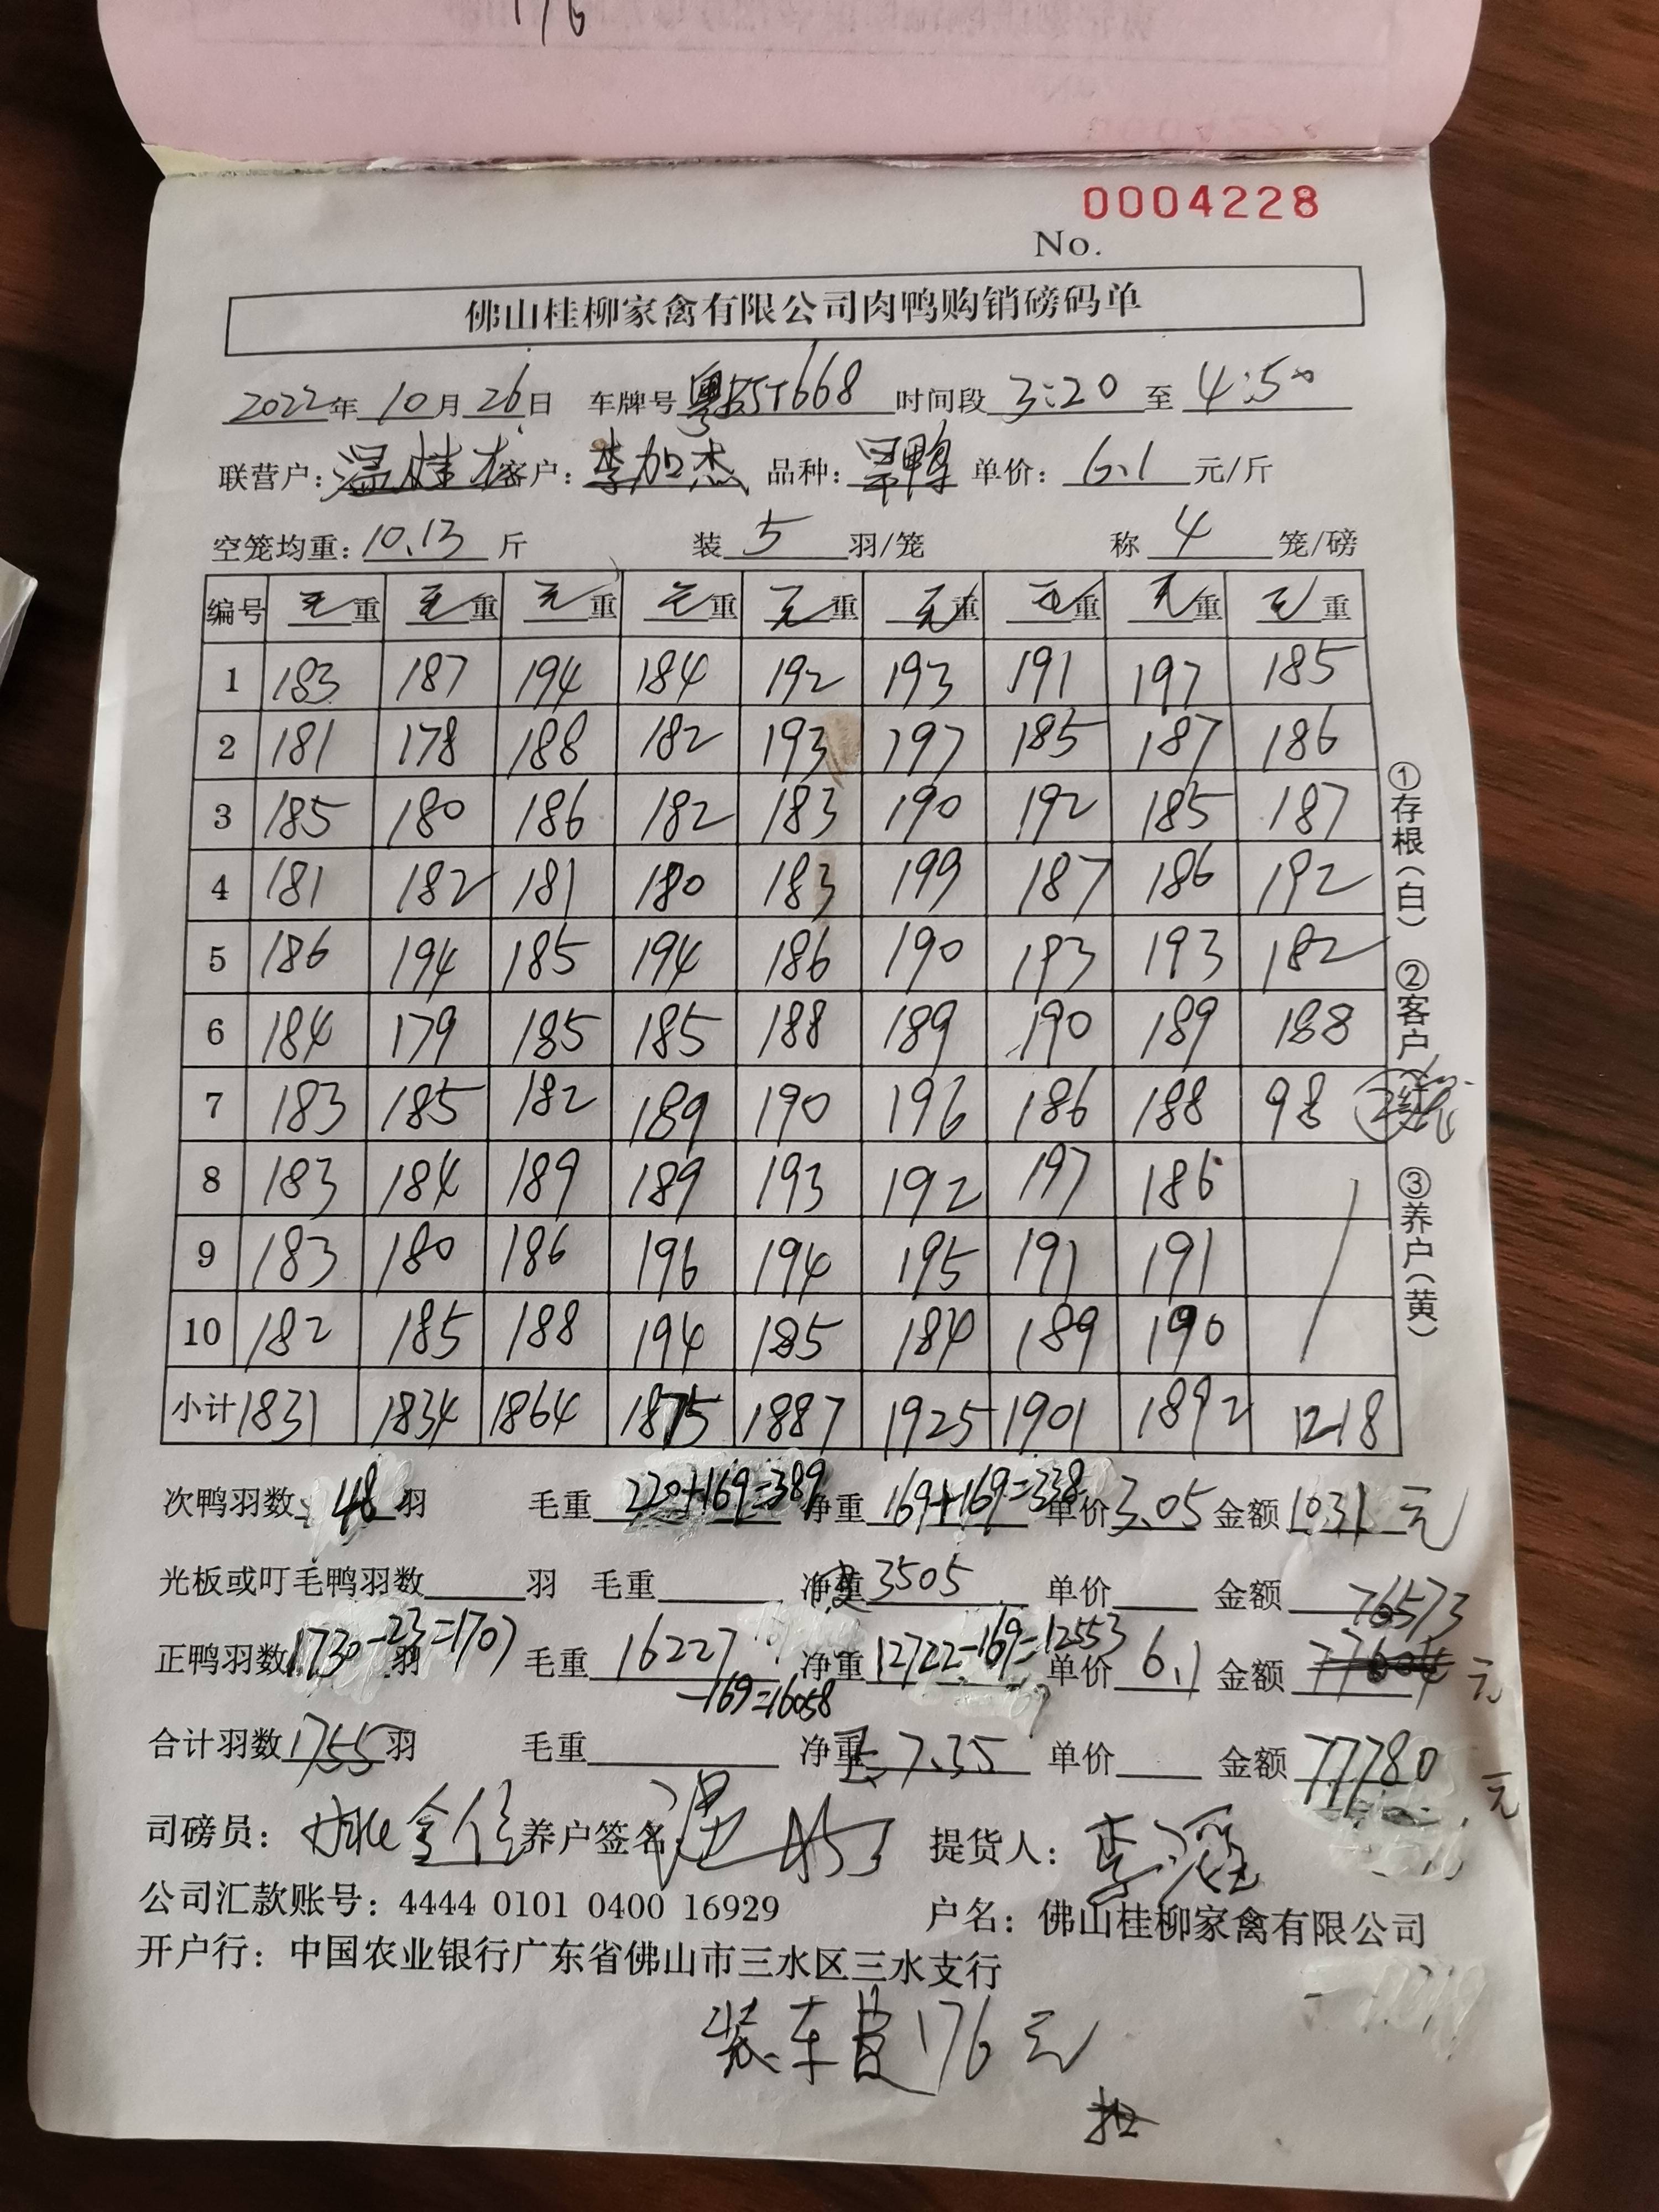 176
0004228
No.
佛山桂柳家禽有限公司肉鸭购销磅码单
2022年 10月 26日 车牌号 粤 T668 时间段 3:20 至 4:50
联营户: 温桂 客户: 李加杰 品种: 鸭 单价: 6.1 元/斤
空笼均重: 10.13 斤 装 5 羽/笼 称 4 笼/磅
编号 毛重 毛重 毛重 毛重 毛重 毛重 毛重 毛重 毛重
1 183 187 194 184 192 193 191 197 185
2 181 178 188 182 193 197 185 187 186
3 185 180 186 182 183 190 192 185 187
4 181 182 181 180 183 199 187 186 192
5 186 194 185 194 186 190 193 193 182
6 184 179 185 185 188 189 190 189 188
7 183 185 182 189 190 196 186 188 98
8 183 184 189 189 193 192 197 186
9 183 180 186 196 194 195 191 191
10 182 185 188 194 185 184 189 190
小计 1831 1834 1864 1875 1887 1925 1901 1892 1218
①存根(白) ②客户 ③养户(黄)
次鸭羽数: 48 羽 毛重 220+169=389 净重 169+169=338 单价 3.05 金额 1031 元
光板或叮毛鸭羽数 羽 毛重 净重 3505 单价 金额 76573
正鸭羽数 1730-23=1707 羽 毛重 16227 净重 12722-169=12553 单价 6.1 金额 77604 元
-169=16058
合计羽数 1755 羽 毛重 净重 7.35 单价 金额 77780 元
司磅员: 养户签名: 提货人: 李
公司汇款账号: 4444 0101 0400 16929 户名: 佛山桂柳家禽有限公司
开户行: 中国农业银行广东省佛山市三水区三水支行
装车 176元